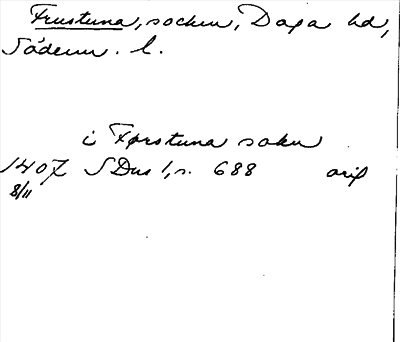 Frustuna, socken, Daga hd,
Söderm. l.
i Førstuna sokn
1407 SDns 1, s. 688 orig
8/11